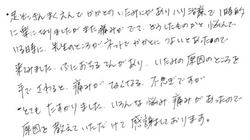 ・足底きんまくえんで かかとの いたみにが あり ハリ治療で1時的
に楽になりましたが また痛みが でて、どうしたものかと悩んで
いる時に 先生のところが ネットで やかと につよいとあったので
来てみました、ふにおちる てんがあり、いたみの原因のところを
手で されると、痛みが なくなる。不思ぎですが
・とても たすかりました。いろんな 悩み 痛みが あったので
原因を教えていただけて 感謝しております。